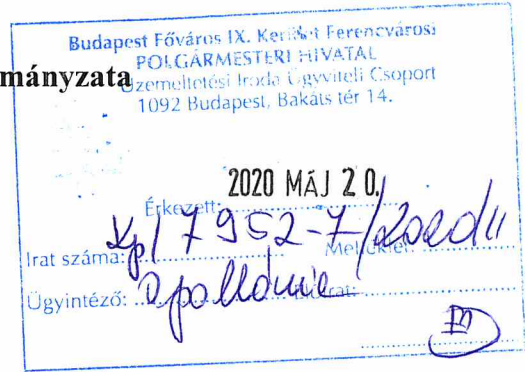 Budapest Főváros IX. Kerület Ferencvárosi
POLGÁRMESTERI HIVATAL
mányzata
Üzemeltetési Iroda Ügyviteli Csoport
1092 Budapest, Bakáts tér 14.
2020 MÁJ 20.
Érkezett:
Irat száma: Kp/7952-7/2020/II Melléklet:
Ügyintéző: